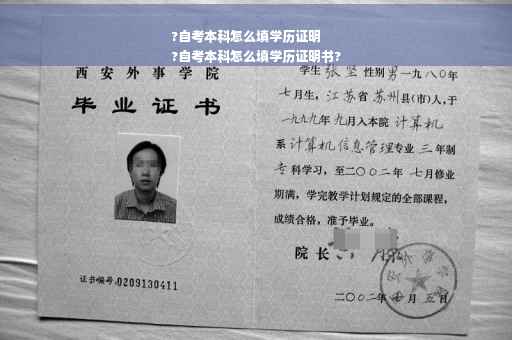 ?自考本科怎么填学历证明
?自考本科怎么填学历证明书?
西安外事学院
毕业证书
证书编号:0209130411
学生张坚性别男一九八〇年
七月生，江苏省苏州县(市)人,于
一九九九年九月入本院计算机
系计算机信息管理专业三年制
专科学习，至二〇〇二年七月修业
期满，学完教学计划规定的全部课程，
成绩合格，准予毕业。
院长
二〇〇二年 月五日